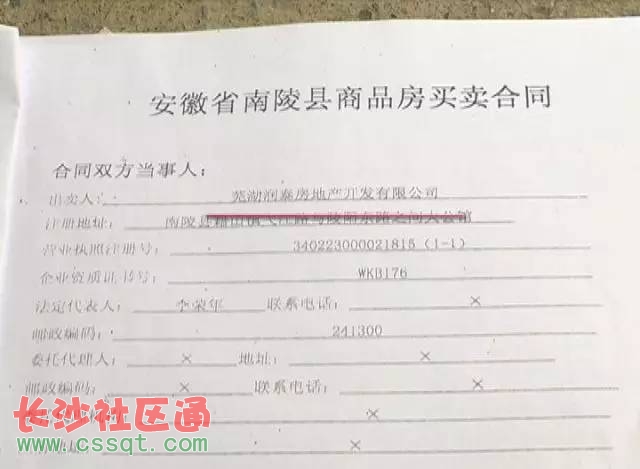 安徽省南陵县商品房买卖合同
合同双方当事人：
出卖人： 芜湖润泰房地产开发有限公司
注册地址： 南陵县籍山镇弋江路与陵阳东路之间大公馆
营业执照注册号： 340223000021815（1-1）
企业资质证书号： WKB176
法定代表人： 李荣年 联系电话： ×
邮政编码： 241300
委托代理人： × 地址： ×
邮政编码： × 联系电话： ×
×
×
长沙社区通
www.cssqt.com